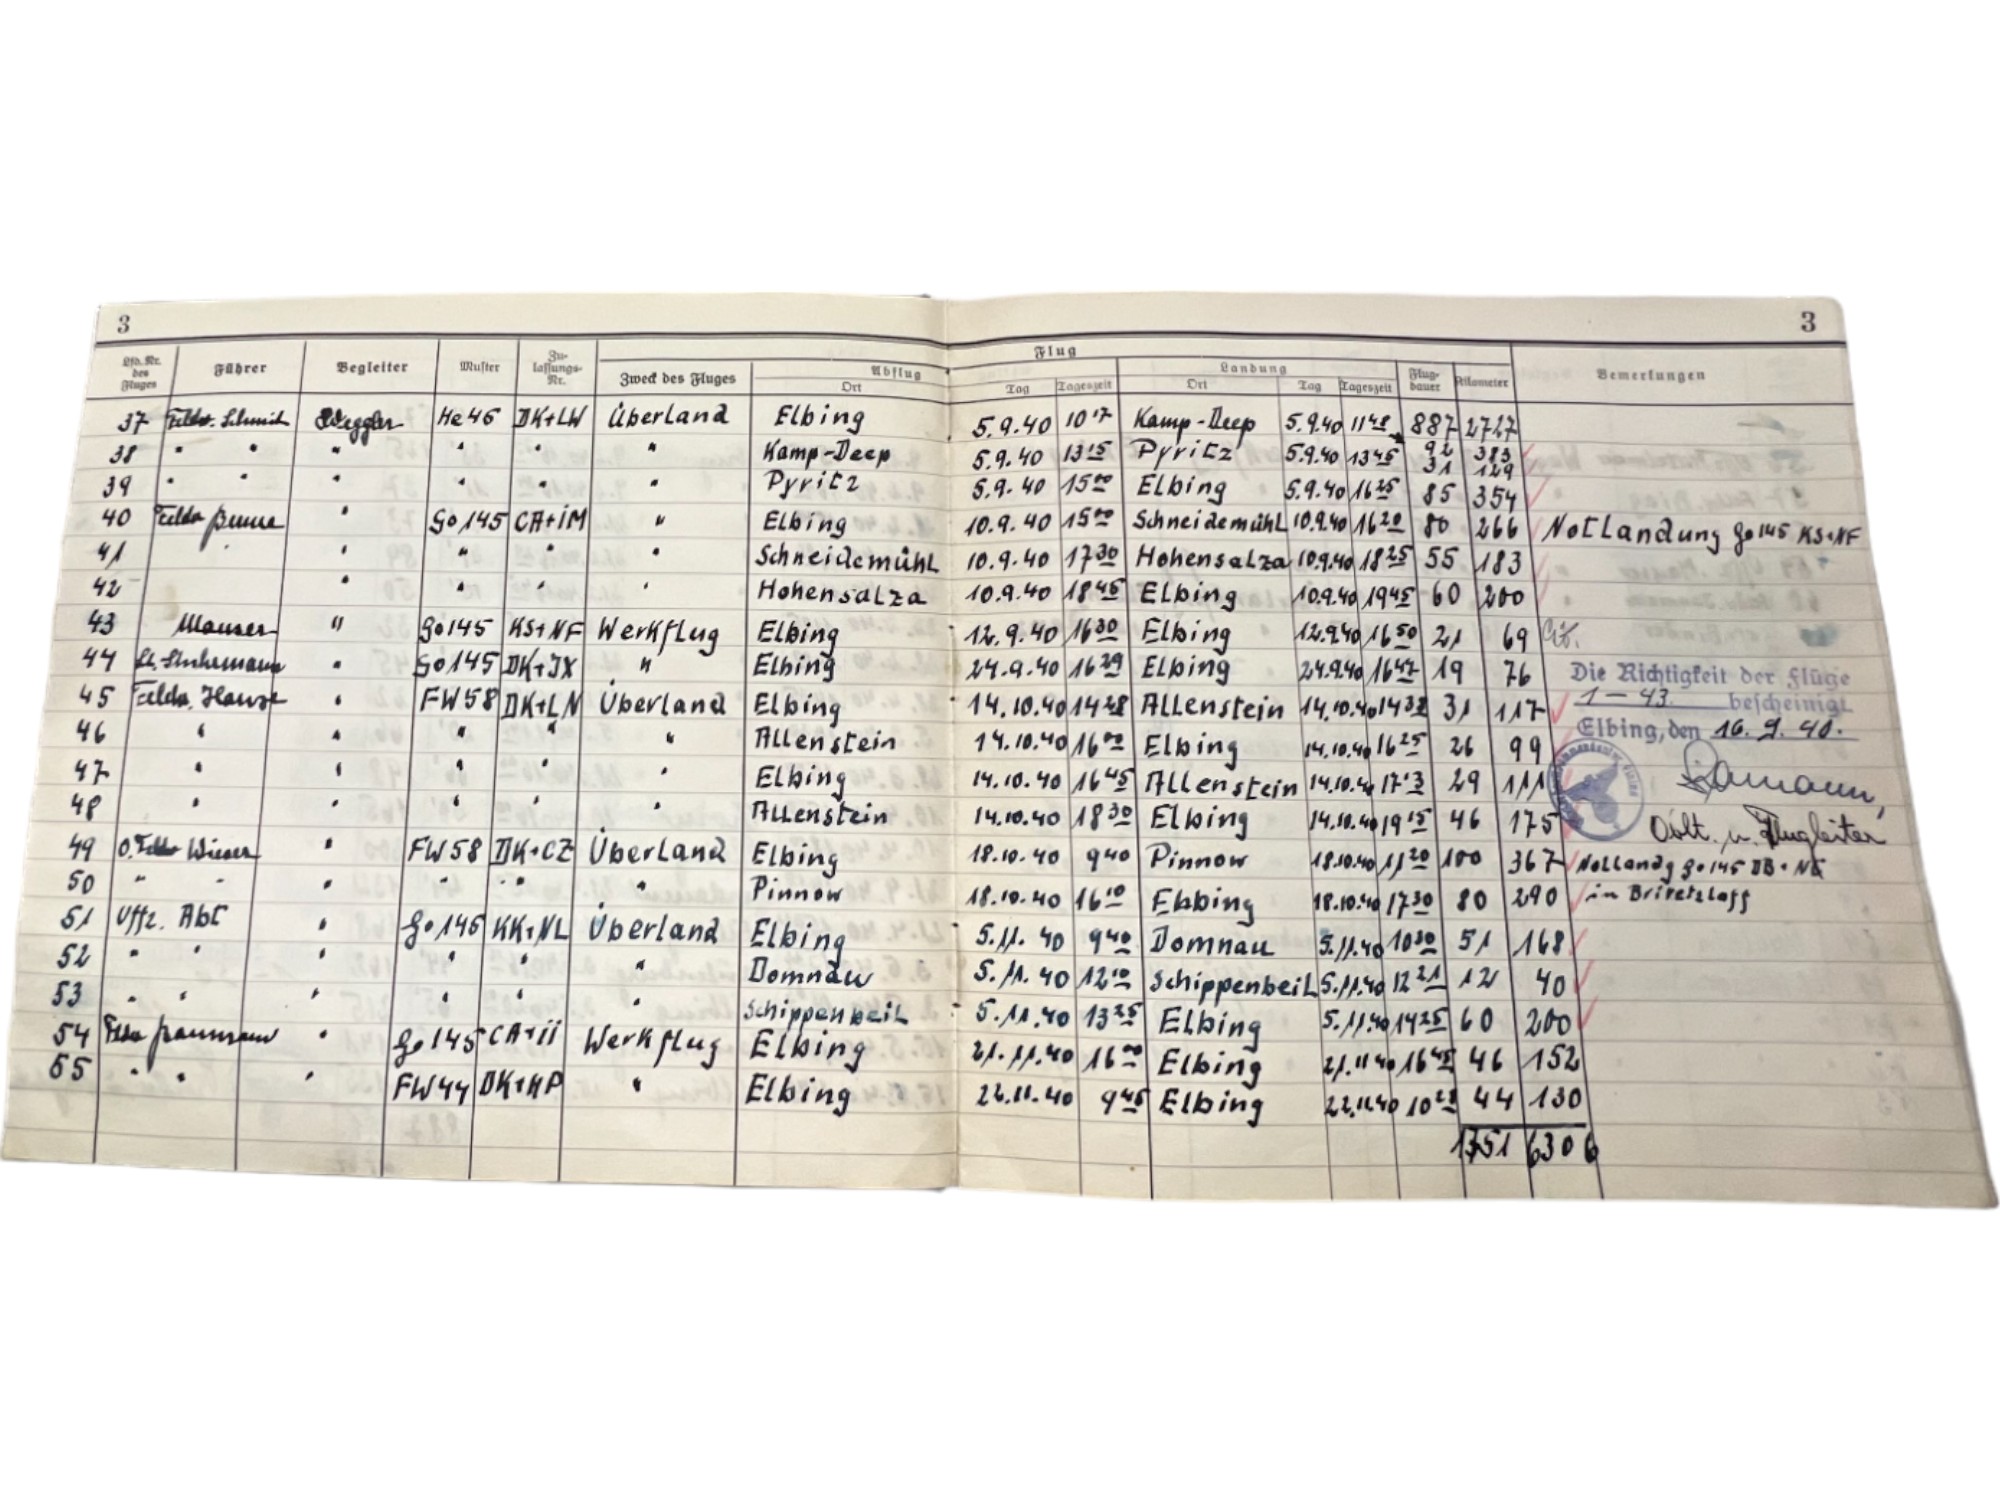 3 3
Lfd. Nr. des Fluges Führer Begleiter Muster Zulassungs-Nr. Zweck des Fluges Flug Abflug Ort Tag Tageszeit Landung Ort Tag Tageszeit Flugdauer Kilometer Bemerkungen
37 Feldw. Schmid Weggler He 46 DK+LW Überland Elbing 5.9.40 10 17 Kamp-Deep 5.9.40 11 48 887 2727
38 " " " " " " Kamp-Deep 5.9.40 13 15 Pyritz 5.9.40 13 45 92 383
31 129
39 " " " " " " Pyritz 5.9.40 15 00 Elbing 5.9.40 16 25 85 354
40 Feldw. " Go 145 CA+IM " Elbing 10.9.40 15 00 Schneidemühl 10.9.40 16 20 80 266 Notlandung Go 145 KS+NF
41 " " " " " Schneidemühl 10.9.40 17 30 Hohensalza 10.9.40 18 25 55 183
42 " " " " Hohensalza 10.9.40 18 45 Elbing 10.9.40 19 45 60 200
43 Mauser " Go 145 KS+NF Werkflug Elbing 12.9.40 16 30 Elbing 12.9.40 16 50 21 69
44 " Go 145 DK+JX " Elbing 24.9.40 16 29 Elbing 24.9.40 16 47 19 76
Die Richtigkeit der Flüge
1 — 43. bescheinigt
45 Feldw. " FW 58 DK+LN Überland Elbing 14.10.40 14 28 Allenstein 14.10.40 31 117
Elbing, den 16. 9. 40.
46 " " " " " Allenstein 14.10.40 16 00 Elbing 14.10.40 16 25 26 99
47 " " " " " Elbing 14.10.40 16 45 Allenstein 14.10.40 17 13 29 111
48 " " " " " Allenstein 14.10.40 18 30 Elbing 14.10.40 19 15 46 175
Oblt. u. Flugleiter
49 O. Feldw. Wieser " FW 58 DK+CZ Überland Elbing 18.10.40 9 40 Pinnow 18.10.40 11 20 100 367 Notlandg Go 145 DB+NE
50 " " " " " " Pinnow 18.10.40 16 10 Elbing 18.10.40 17 30 80 290 in
51 Uffz. Abt " Go 145 KK+NL Überland Elbing 5.11.40 9 40 Domnau 5.11.40 10 30 51 168
52 " " " " " " Domnau 5.11.40 12 10 Schippenbeil 5.11.40 12 21 12 40
53 " " " " " " Schippenbeil 5.11.40 13 25 Elbing 5.11.40 14 25 60 200
54 Feldw. Baumann " Go 145 CA+II Werkflug Elbing 21.11.40 16 00 Elbing 21.11.40 16 45 46 152
55 " " " FW 44 DK+KP " Elbing 22.11.40 9 45 Elbing 22.11.40 10 28 44 130
1751 6306